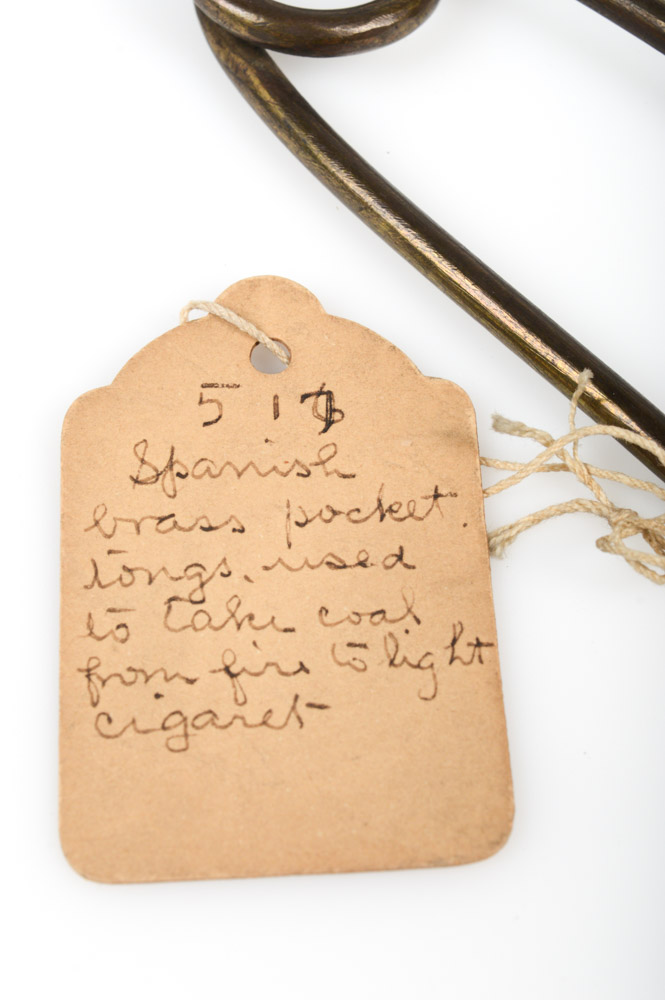 51
Spanish
brass pocket.
tongs. used
to take coal
from fire to light
cigaret